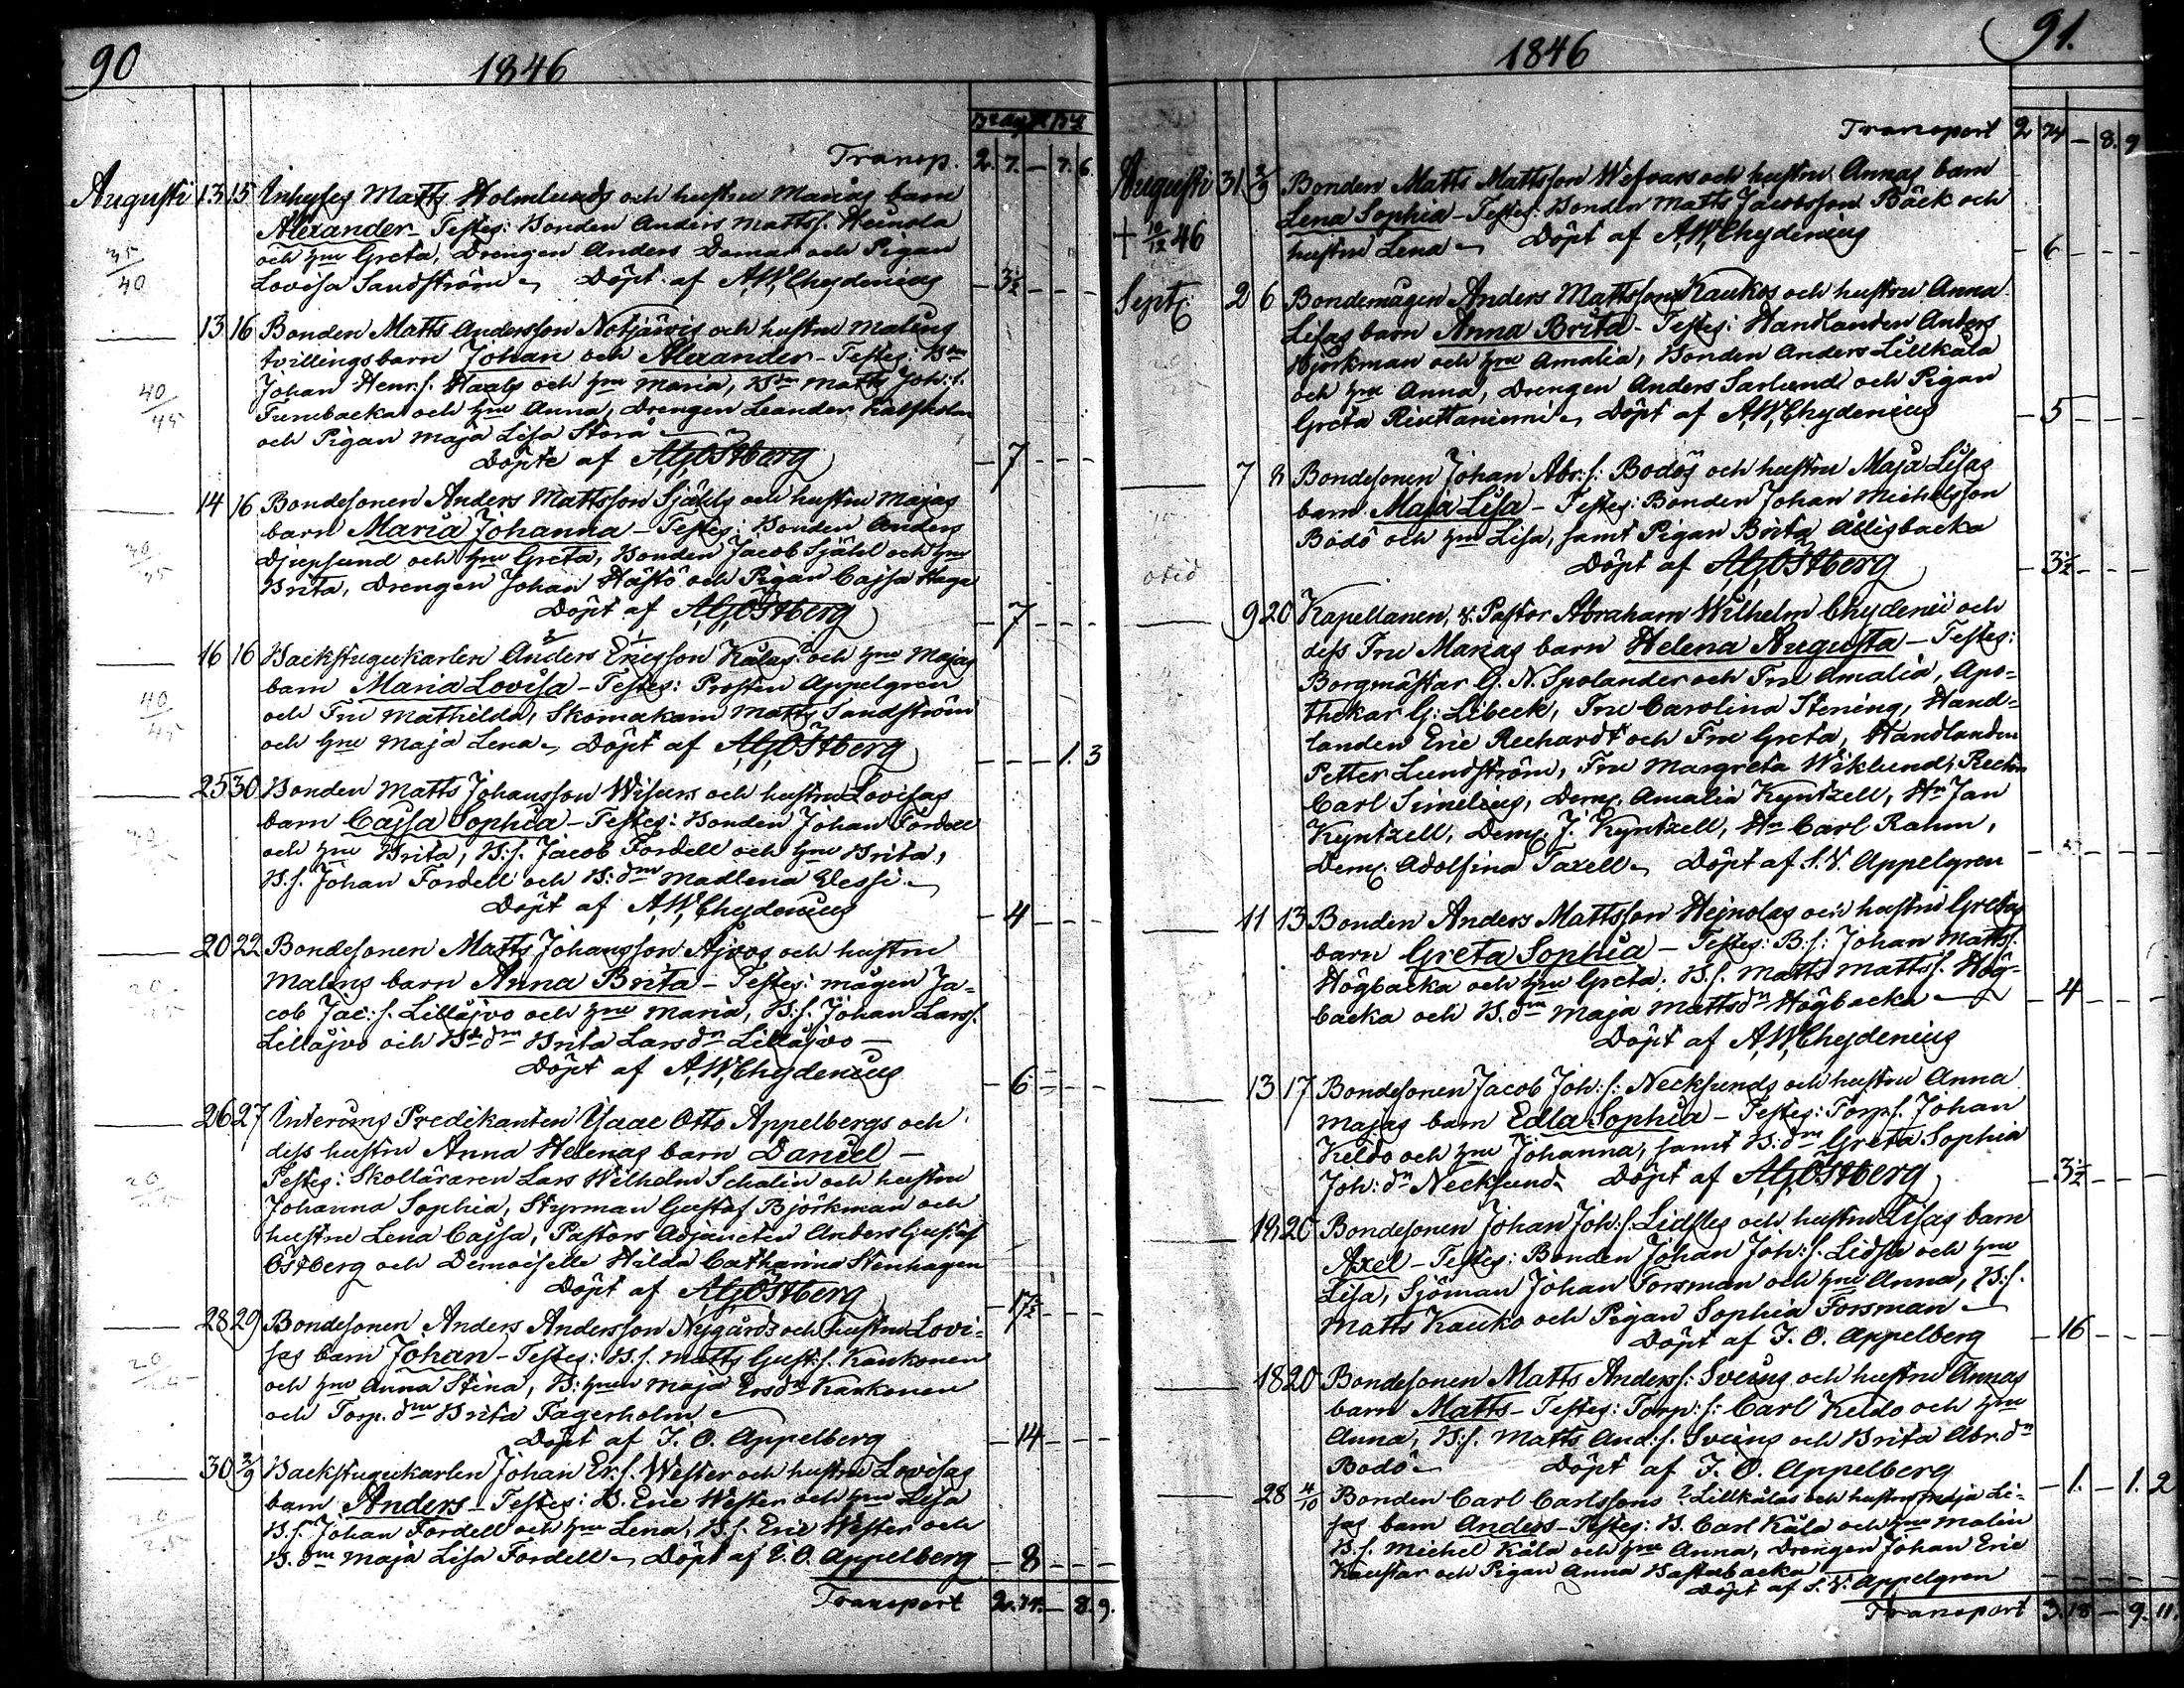 90
1846
Transp. 2. 7. — 7. 6
Augusti 13 15 Inhyses Matts Holmlunds och hustru Marias barn
Alexander – Testes: Bonden Anders Mattss.
och hru Greta, Drengen Anders Domar och Pigan
35/40
Lovisa Sandström – Döpt af A,W,Chydenius – 3½ – – –
13 16 Bonden Matts Andersson Notjärvis och hustru Malins
tvillingsbarn Johan och Alexander – Testes: Bdn
Johan Henr:s. Haals och hru Maria, Bdn Matts Joh:s.
40/45
Furubacka och hru Anna, Drengen Leander Kalfholm
och Pigan Maja Lisa Storå
Döpte af A,G,Östberg – 7 – – –
14 16 Bondesonen Anders Mattsson Själs och hustru Majas
barn Maria Johanna – Testes: Bonden Anders
Djupsund och hru Greta, Bonden Jacob Själ och hru
Brita, Drengen Johan Hästö och Pigan Cajsa Haga
Döpt af A,G,Östberg – 7 – – –
16 16 Backstugukarlen Anders Ericsson Kålas och hru Majas
barn Maria Lovisa – Testes: Prosten Appelgren
40/45
och Fru Mathilda, Skomakarn Matts Sandström
och hru Maja Lena – Döpt af A,G,Östberg – – – 1. 3
25 30 Bonden Matts Johansson Wisurs och hustru Lovisas
barn Cajsa Sophia – Testes: Bonden Johan Fordell
och hru Brita, B:s. Jacob Fordell och hru Brita,
B.s. Johan Fordell och B:dm Madlena Wessi –
Döpt af A,W,Chydenius – 4 – – –
20 22 Bondesonen Matts Johansson Åjvos och hustru
Malins barn Anna Brita – Testes: mågen Ja-
cob Jac:s. Lillåjvo och hru Maria, B:s. Johan Larss.
Lillåjvo och Bdn dm Brita Larsdn Lillåjvo –
Döpt af A,W,Chydenius – 6 – – –
26 27 Interims Predikanten Isaac Otto Appelbergs och
dess hustru Anna Helenas barn Daniel –
Testes: Skolläraren Lars Wilhelm Schalin och hustru
Johanna Sophia, Styrman Gustaf Björkman och
hustru Lena Cajsa, Pastors Adjuncten Anders Gustaf
Östberg och Demoiselle Hilda Catharina Stenhagen
Döpt af A,G,Östberg – 17½ – –
28 29 Bondesonen Anders Andersson Nygårds och hustru Lovi-
sas barn Johan – Testes: B.s. Matts Gust:s. Kaukonen
och hru Anna Stina, B: hrun Maja Ersdn Kaukonen
och Torp. dm Brita Fagerholm –
Döpt af I. O. Appelberg – 14 – – –
30 2/9 Backstugukarlen Johan Er.s. Wester och hustru Lovisas
barn Anders – Testes: B. Eric Wester och hru Lisa
B.s. Johan Fordell och hru Lena, B.s. Eric Wester och
B. dm Maja Lisa Fordell – Döpt af I. O. Appelberg – 8 – – –
Transport 2. 74. – 8. 9.
91.
1846
Transport 2 74 – 8. 9
Augusti 31 2/9 Bonden Matts Mattsson Wefvars och hustru Annas barn
Lena Sophia – Testes: Bonden Matts Jacobsson Bäck och
+ 10/12 46
hustru Lena – Döpt af A,W,Chydenius – 6 – – –
Septr. 2 6 Bondemågen Anders Mattsson Kaukos och hustru Anna
Lisas barn Anna Brita – Testes: Handlanden Anders
Björkman och hru Amalia, Bonden Anders Lillkåla
och hru Anna, Drengen Anders Sarlund och Pigan
Greta Riuttaniemi – Döpt af A,W,Chydenius – 5 – – –
7 8 Bondesonen Johan Abr:s: Bodös och hustru Maja Lisas
barn Maja Lisa – Testes: Bonden Johan Michelsson
Bodö och hru Lisa, samt Pigan Brita Ållisbacka
otid
Döpt af A,G,Östberg – 3½ – – –
9 20 Kapellanen, v. Pastor Abraham Wilhelm Chydenii och
dess Fru Marias barn Helena Augusta – Testes:
Borgmästar G. N. Spolander och Fru Amalia, Apo-
thekar G: Libeck, Fru Carolina Stening, Hand-
landen Eric Rechardt och Fru Greta, Handlanden
Petter Lundström, Fru Margreta Wiklund, Rector
Carl Simelius, Dems. Amalia Kyntzell, Hr Jan
Kyntzell, Dems. J. Kyntzell, Hr Carl Rahm,
Dems. Adolfina Taxell – Döpt af S. V. Appelgren
11 13 Bonden Anders Mattsson Hejnolas och hustru Gretas
barn Greta Sophia – Testes: B:s: Johan Matts:s.
Högbacka och hru Greta, B.s. Matts Mattss. Hög-
backa och B. dm Maja Mattsdn Högbacka – 4 – – –
Döpt af A,W,Chydenius
13 17 Bondesonen Jacob Joh:s: Necksunds och hustru Anna
Majas barn Edla Sophia – Testes: Torp:s. Johan
Keldo och hru Johanna, samt B:dm Greta Sophia
Joh:dn Necksund. Döpt af A,G,Östberg – 3½ – –
19 20 Bondesonen Johan Joh:s. Lidstes och hustru Lisas barn
Axel – Testes: Bonden Johan Joh:s. Lidste och hru
Lisa, Sjöman Johan Forsman och hru Anna, B:s.
Matts Kauko och Pigan Sophia Forsman –
Döpt af I. O. Appelberg – 16 – – –
18 20 Bondesonen Matts Anders:s: Sveins och hustru Annas
barn Matts – Testes: Torp:s: Carl Keldo och hru
Anna, B.s. Matts And:s. Sveins och Brita Abr.dn
Bodö – Döpt af I. O. Appelberg – 1. – 1. 2
28 4/10 Bonden Carl Carlssons Lillkålas och hustru Maja Li-
sas barn Anders – Testes: B. Carl Kåla och hru Malin
B.s. Michel Kåla och hru Anna, Drengen Johan Eric
Kaustar och Pigan Anna Hasterbacka
Döpt af S. V. Appelgren – – – – –
Transport 3. 18 – 9. 11.